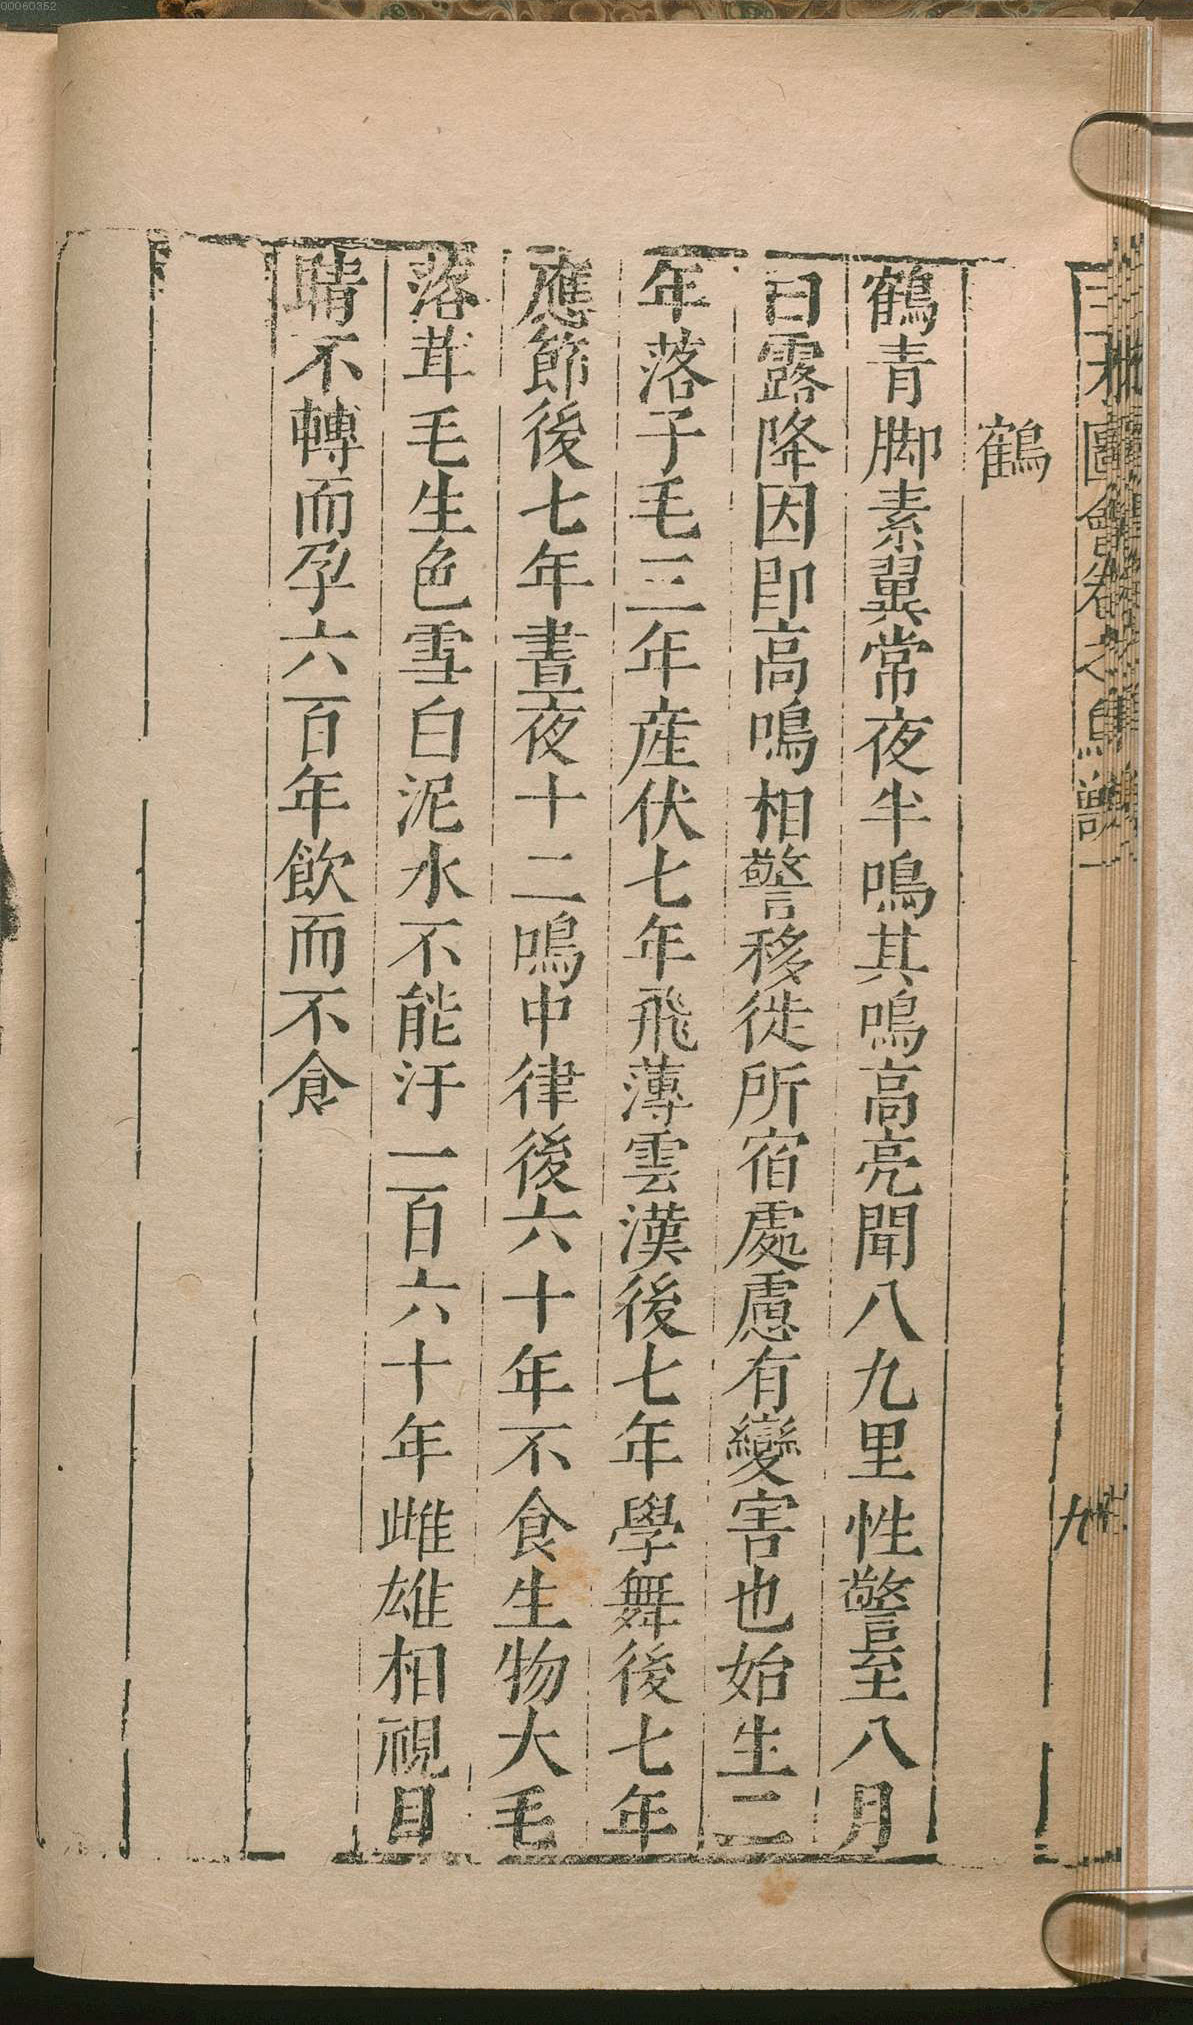 00060352
鶴
鶴青脚素翼常夜半鳴其鳴高亮聞八九里性警至八月
白露降因即高鳴相警移徙所宿處慮有變害也始生二
年落子毛三年産伏七年飛薄雲漢後七年學舞後七年
應節後七年晝夜十二鳴中律後六十年不食生物大毛
落茸毛生色雪白泥水不能汙一百六十年雌雄相視目
睛不轉而孕六百年飲而不食
圖會卷之鳥獸一
九